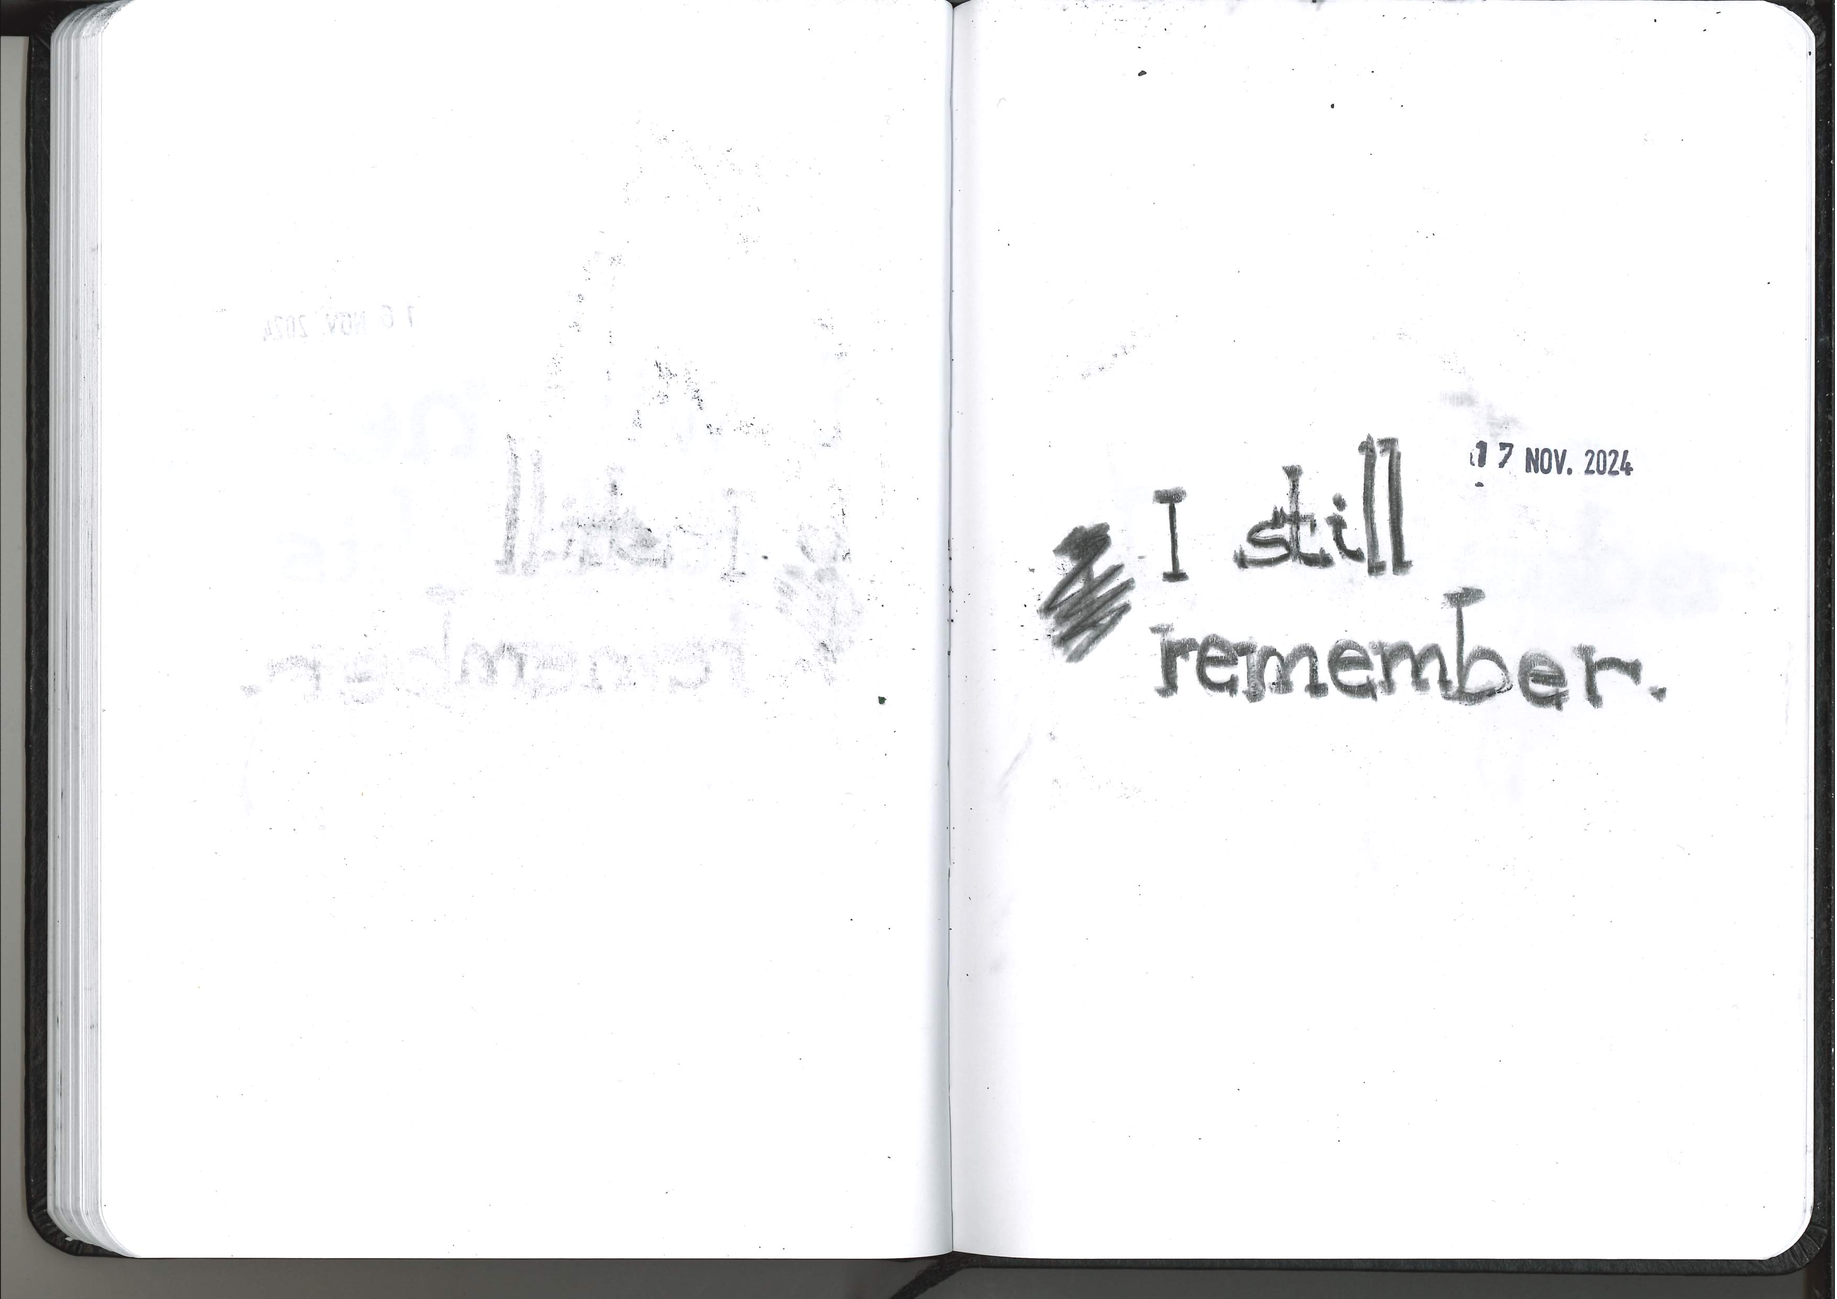 17 NOV. 2024
I still
remember.